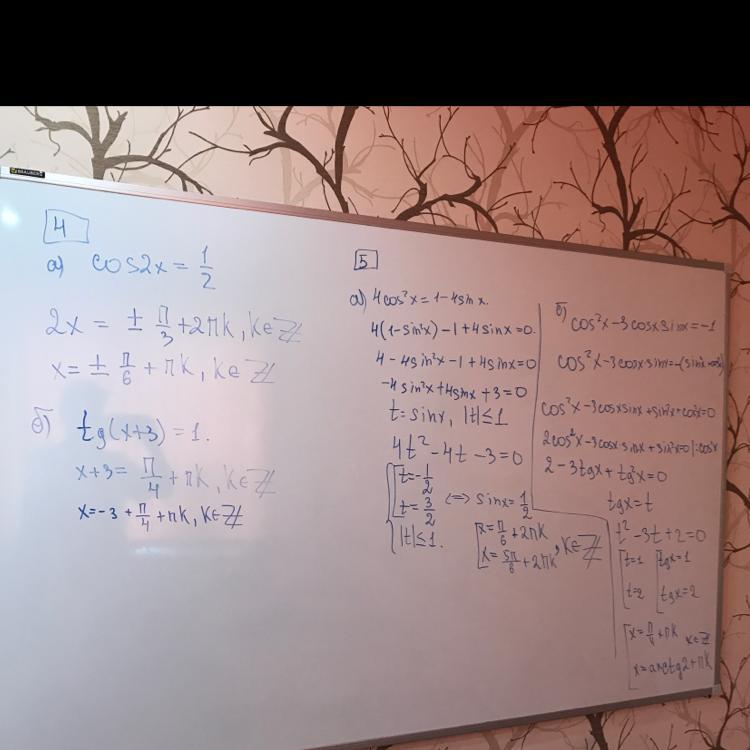 BRAUBERG
4
а) cos2x = 1/2
2x = ± π/3 + 2πk, k∈Z
x = ± π/6 + πk, k∈Z
б) tg(x+3) = 1.
x+3 = π/4 + πk, k∈Z
x = -3 + π/4 + πk, k∈Z
5
а) 4cos²x = 1-4sinx.
4(1-sin²x) -1+4sinx=0.
4-4sin²x-1+4sinx=0
-4sin²x+4sinx+3=0
t=sinx, |t|≤1
4t²-4t-3=0
[t=-1/2
t=3/2
|t|≤1.
⇔ sinx=1/2
[x=π/6+2πk
x=5π/6+2πk, k∈Z
б) cos²x-3cosxsinx=-1
cos²x-3cosxsinx=-(sin²x+cos²x)
cos²x-3cosxsinx+sin²x+cos²x=0
2cos²x-3cosx·sinx+sin²x=0 |:cos²x
2-3tgx+tg²x=0
tgx=t
t²-3t+2=0
[t=1 [tgx=1
t=2 tgx=2
[x=π/4+πk k∈Z
x=arctg2+πk